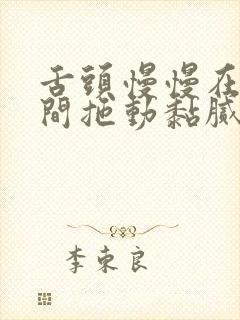 舌頭慢慢在
間拖動黏膩
李東良